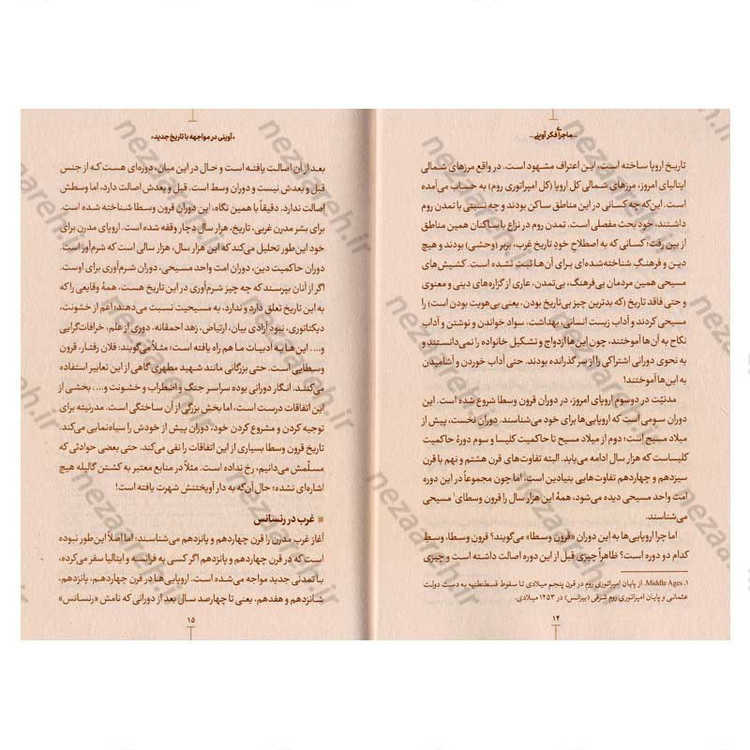 ـ ماجرا فکر آوینی ـ
تاریخ اروپا ساخته است، این اعتراف مشهود است. در واقع مرزهای شمالی
ایتالیای امروز، مرزهای شمالی کل اروپا (کل امپراتوری روم) به حساب می‌آمده
است. این‌که چه کسانی در این مناطق ساکن بودند و چه نسبتی با تمدن روم
داشتند، خود بحث مفصلی است. تمدن روم در نزاع با ساکنان همین مناطق
از بین رفت؛ کسانی که به اصطلاح خودِ تاریخ غرب، بربر (وحشی) بودند و هیچ
دین و فرهنگِ شناخته‌شده‌ای برای آن‌ها ثبت نشده است. کشیش‌های
مسیحی همین مردمان بی‌فرهنگ، بی‌تمدن، عاری از گزاره‌های دینی و معنوی
و حتی فاقد تاریخ (که بدترین چیز بی‌تاریخ بودن، یعنی بی‌هویت بودن است) را
مسیحی کردند و آداب زیست انسانی، بهداشت، سواد خواندن و نوشتن و آداب
نکاح به آن‌ها آموختند، چون این‌ها ازدواج و تشکیل خانواده را نمی‌دانستند و
به نحوی دورانی اشتراکی را از سر گذرانده بودند. حتی آداب خوردن و آشامیدن
به این‌ها آموختند!
مدنیّت در دوسوم اروپای امروز، از دوران قرون وسطا شروع شده است. این
دوران سومی است که اروپایی‌ها برای خود می‌شناسند. دوران نخست، پیش از
میلاد مسیح است؛ دوم از میلاد مسیح تا حاکمیت کلیسا و سوم دورهٔ حاکمیت
کلیساست که هزار سال ادامه می‌یابد. البته تفاوت‌های قرن هشتم و نهم با قرن
سیزدهم و چهاردهم تفاوت‌هایی بنیادین است. اما چون مجموعاً در این دوره
امت واحد مسیحی دیده می‌شود، همهٔ این هزار سال را قرون وسطای¹ مسیحی
می‌شناسند.
اما چرا اروپایی‌ها به این دوران «قرون وسطا» می‌گویند؟ قرون وسطا، وسطِ
کدام دو دوره است؟ ظاهراً چیزی قبل از این دوره اصالت داشته است و چیزی
۱. Middle Ages، از پایان امپراتوری روم در قرن پنجم میلادی تا سقوط قسطنطنیه به دست دولت
عثمانی و پایان امپراتوری روم شرقی (بیزانس) در ۱۴۵۳ میلادی.
۱۴
«آوینی در مواجهه با تاریخ جدید»
بعد از آن اصالت یافته است و حال در این میان، دوره‌ای هست که از جنس
قبل و بعدش نیست و دوران وسط است. قبل و بعدش اصالت دارد، اما وسطش
اصالت ندارد. دقیقاً با همین نگاه، این دوران قرون وسطا شناخته شده است.
برای بشر مدرن غربی، تاریخ، هزار سال دچار وقفه شده است. اروپای مدرن برای
خود این‌طور تحلیل می‌کند که این هزار سال، هزار سالی است که شرم‌آور است.
دوران حاکمیت دین، دوران امت واحد مسیحی، دوران شرم‌آوری برای اوست.
اگر از آنان بپرسند که چه چیز شرم‌آوری در این تاریخ هست، همهٔ وقایعی را که
به این تاریخ تعلق دارد و ندارد، به مسیحیت نسبت می‌دهند؛ اعم از خشونت،
دیکتاتوری، نبود آزادی بیان، ارتیاض، زهد احمقانه، دوری از علم، خرافات‌گرایی
و.... این‌ها به ادبیات ما هم راه یافته است؛ مثلاً می‌گویند: فلان رفتار، قرون
وسطایی است. حتی بزرگانی مانند شهید مطهری گاهی از این تعابیر استفاده
می‌کنند. انگار دورانی بوده سراسر جنگ و اضطراب و خشونت و.... بخشی از
این اتفاقات درست است، اما بخش بزرگی از آن ساختگی است. مدرنیته برای
توجیه کردن و مشروع کردن خود، دوران پیش از خودش را سیاه‌نمایی می‌کند.
تاریخ قرون وسطا بسیاری از این اتفاقات را نفی می‌کند. حتی بعضی حوادثی که
مسلّمش می‌دانیم، رخ نداده است. مثلاً در منابع معتبر به کشتن گالیله هیچ
اشاره‌ای نشده؛ حال آن‌که به دار آویختنش شهرت یافته است!
غرب در رنسانس
آغاز غرب مدرن را قرن چهاردهم و پانزدهم می‌شناسند؛ اما اصلاً این‌طور نبوده
است که در قرن چهاردهم و پانزدهم اگر کسی به فرانسه و ایتالیا سفر می‌کرده،
با تمدنی جدید مواجه می‌شده است. اروپایی‌ها در قرن چهاردهم، پانزدهم،
شانزدهم و هفدهم، یعنی تا چهارصد سال بعد از دورانی که نامش «رنسانس»
۱۵
nezaareh.ir